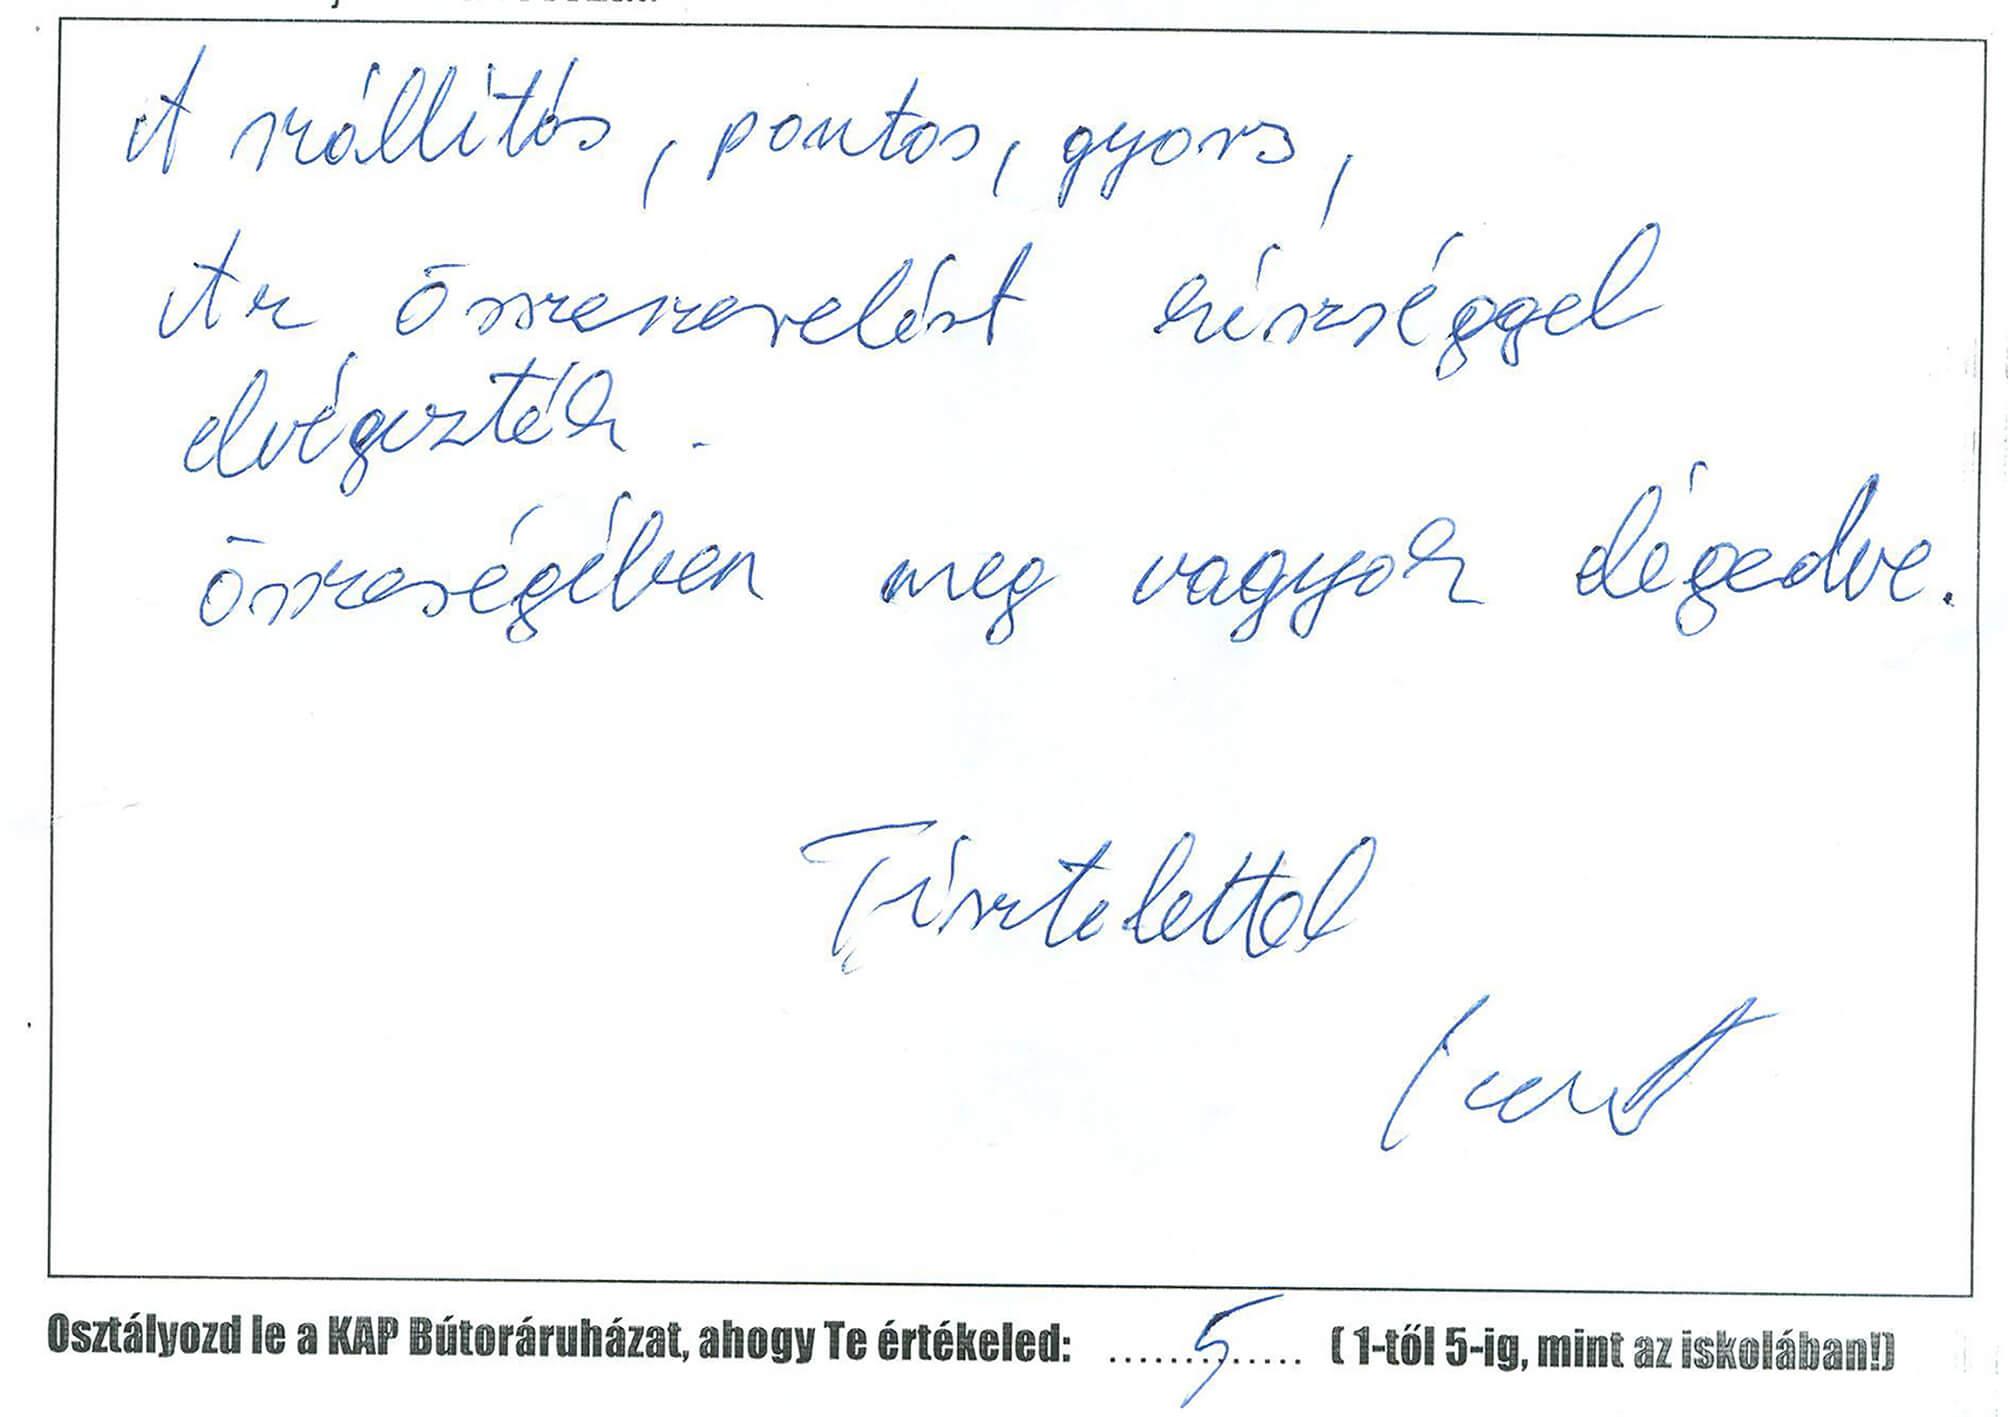 A szállítás, pontos, gyors,
Az összeszerelést készséggel
elvégezték.
összeségében meg vagyok elégedve.
Tisztelettel
Osztályozd le a KAP Bútoráruházat, ahogy Te értékeled: ......5...... ( 1-től 5-ig, mint az iskolában!)